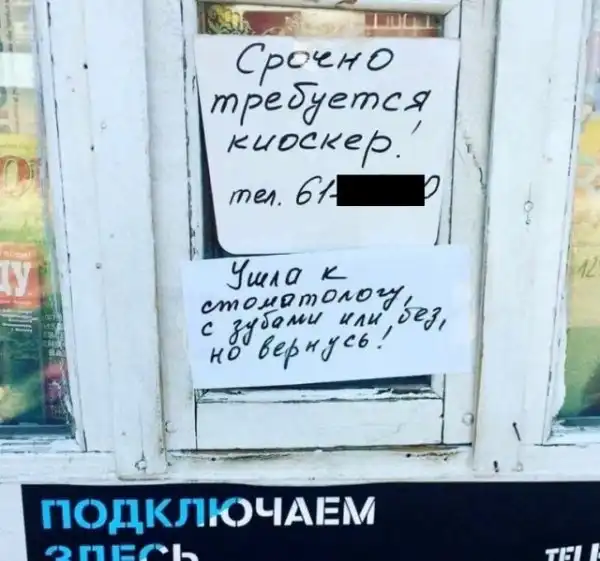 Срочно
требуется
киоскер!
тел. 61- 0
Ушла к
стоматологу,
с зубами или без,
но вернусь!
ДУ
12
ПОДКЛЮЧАЕМ
ЗДЕСЬ